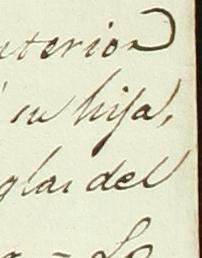 nterior
su hija,
glas del